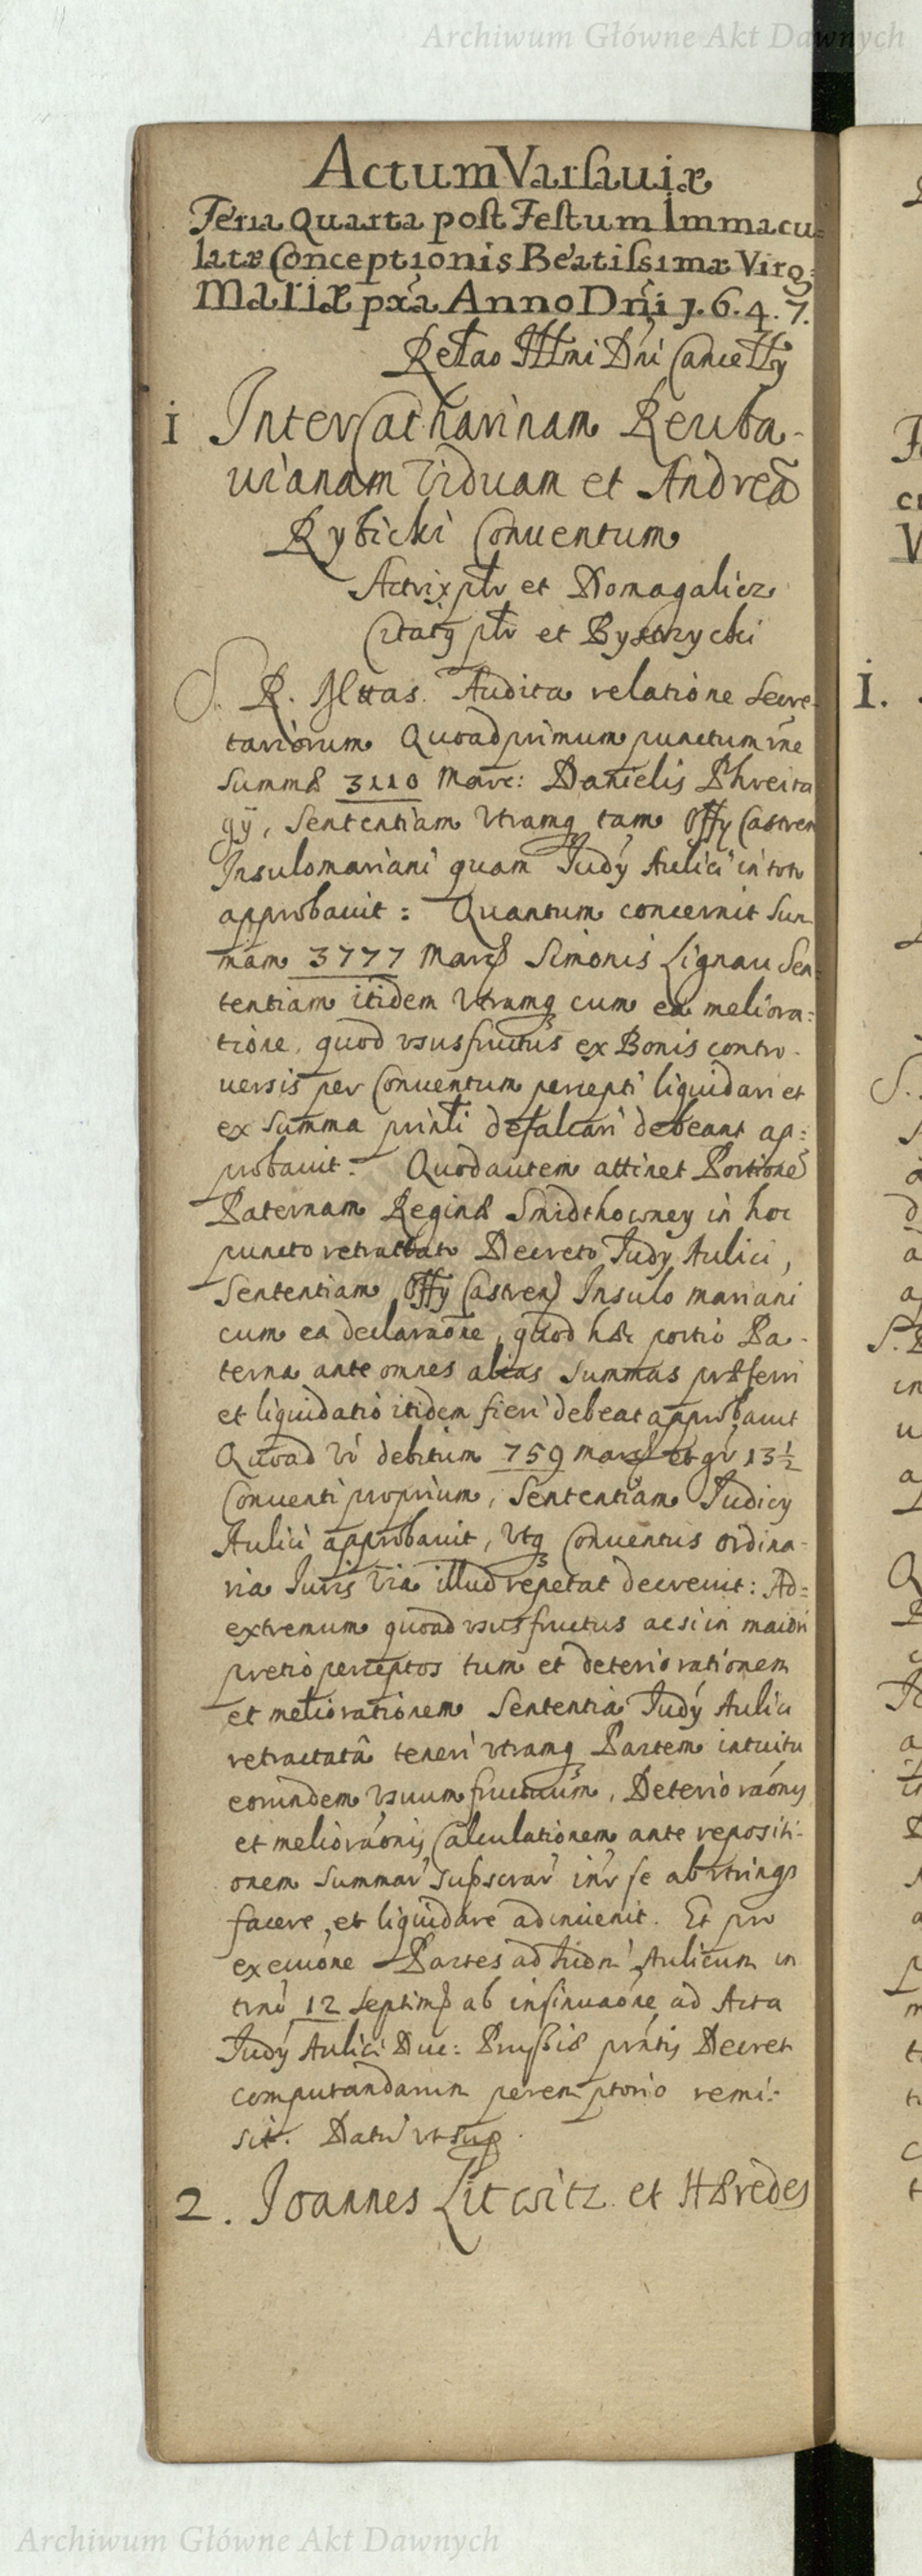 Archiwum Główne Akt Dawnych
Actum Varsaviæ
Feria Quarta post Festum Immacu=
latæ Conceptionis Beatissimæ Virg:
Mariæ pxã Anno Dñi 1.6.4.7.
Relao Illmi Dñi Cancelly
1 Inter Catharinam Reuba-
uianam Viduam et Andreã
Rybicki Conuentum
Actrix plr et Domagalicz
Citatq plr et Bystrzycki
S. R. Mttas. Audita relatione Secre-
tariorum Quoad primum punctum rñe
Summæ 3110 Marc: Danielis Phreita
gÿ, Sententiam Vtramq tam Offy Castren
Insulomariani quam Judÿ Aulici in toto
approbauit: Quantum concernit Sum
mam 3777 Marc Simonis Lignau Sen=
tentiam itidem Vtramq cum ea meliora=
tione, quod vsusfructus ex Bonis contro-
uersis per Conuentum percepti liquidari et
ex Summa prinli defalcari debeant ap=
probauit. Quod autem attinet Portionẽ
Paternam Reginæ Smidthowney in hoc
puncto retractato Decreto Judy Aulici,
Sententiam Offy Castren Insulo mariani
cum ea declaraõne, quod hæc portio Pa-
terna ante omnes alias summas præferri
et liquidatio itidem fieri debeat approbauit
Quoad vo debitum 759 marc et gr 13½
Conuenti proprium, Sententiam Judicy
Aulici approbauit, Vtq Conuentus ordina-
ria Juris via illud repetat decreuit: Ad=
extremum quoad vsusfructus ac si in maiori
pretio perceptos tum et deteriorationem
et meliorationem Sententia Judÿ Aulici
retractatâ teneri vtramq Partem intuitu
eorundem vsuum fructuum, Deterioraõnis
et melioraõnis Calculationem ante repositi-
onem Summar supscrar intr se ab vtrinq
facere, et liquidare adinuenit. Et pro
execuõne Partes ad Judm Aulicum in
trno 12 Septim ab insinuaõne ad Acta
Judÿ Aulici Duc: Prussiæ prntis Decret
computandarum peremptorio remi:
sit. Datum vt sup.
2. Joannes Litwitz et Hæredes
1.
Archiwum Główne Akt Dawnych